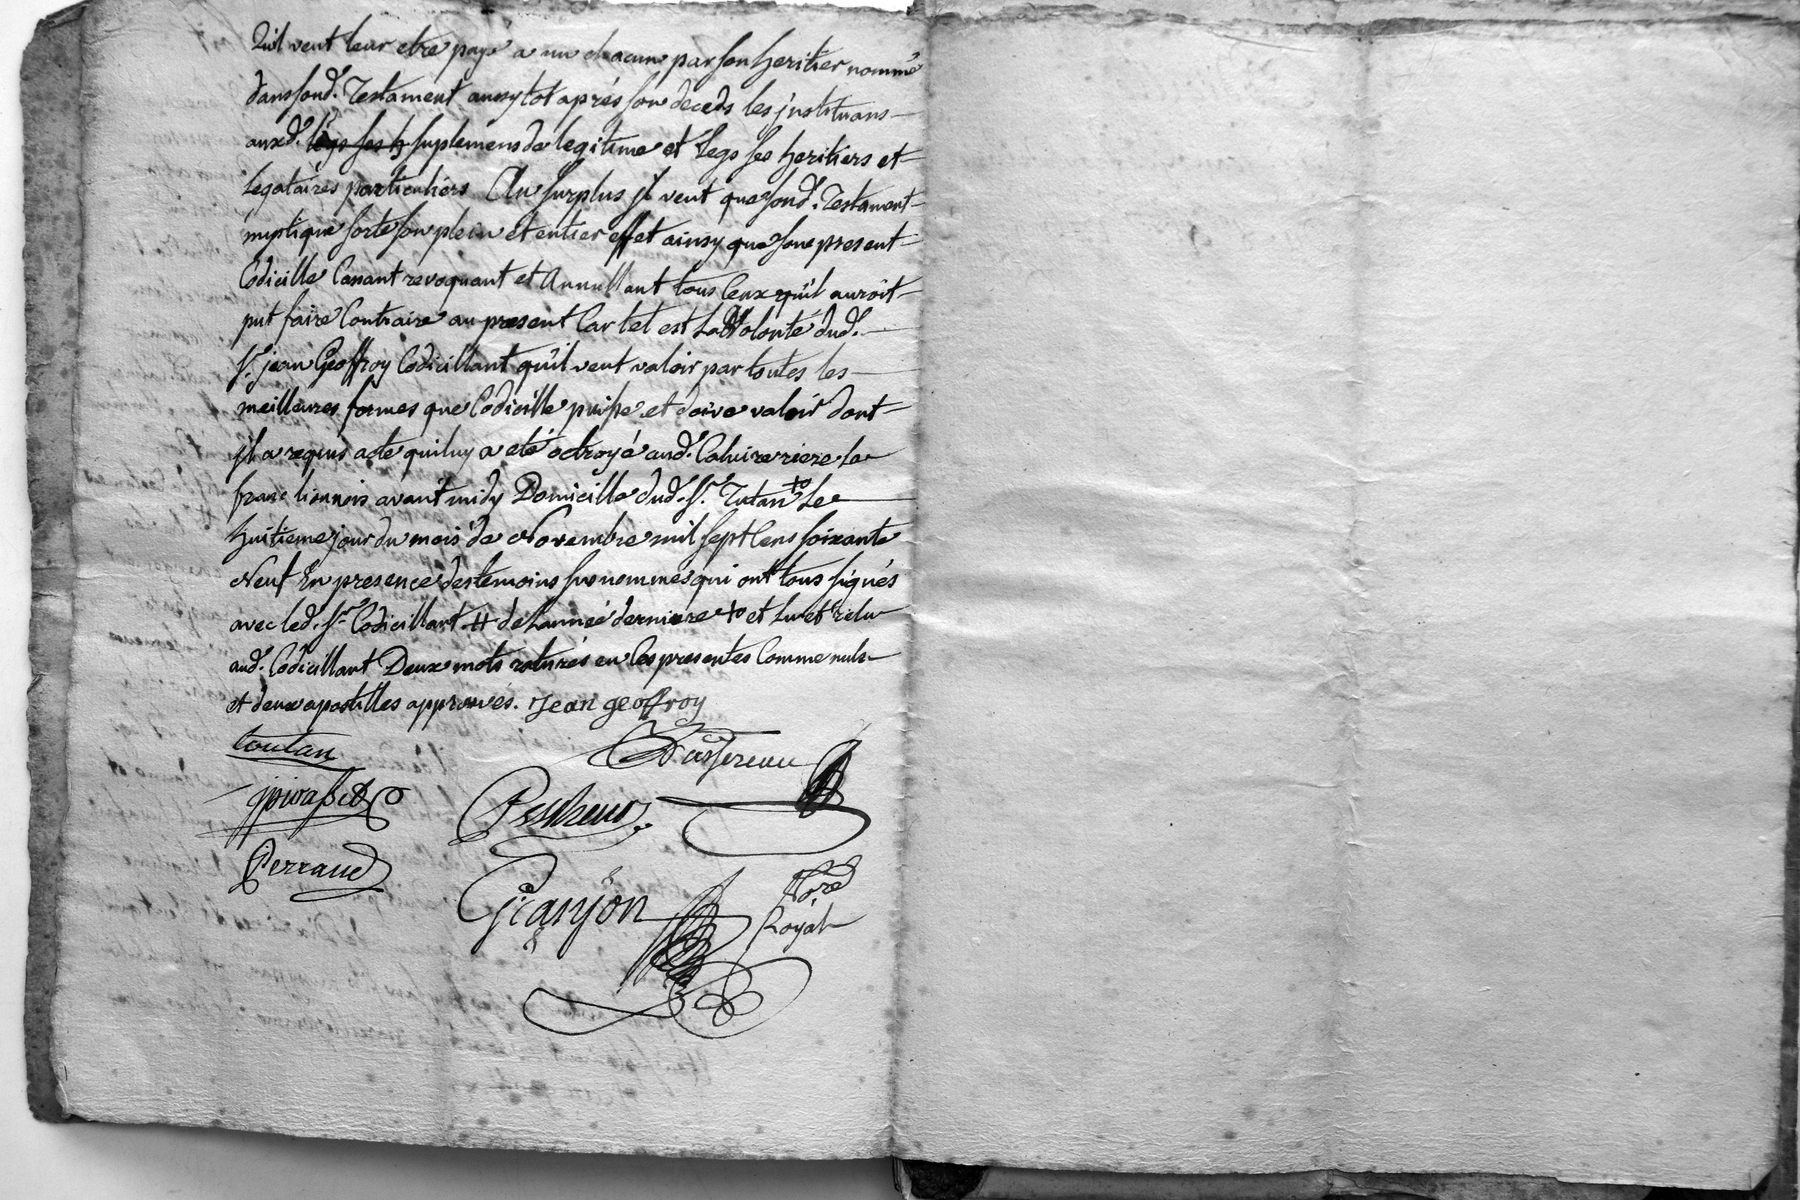 Quil veut leur etre payé a un chacun par son heritier nommé
dans sond. Testament aussytot aprés son deceds les instituans
auxd. legs ses h suplemens de legitime et Legs ses heritiers et
Legataires particuliers Au surplus jl veut que sond. Testament
mystique sorte son plein et entier effet ainsy que son present
Codicille Cassant revoquant et Annullant tous Ceux qu'il auroit
put faire Contraire au present Car tel est La Volonté dud.
Sr. jean Geoffroy Codicillant qu'il veut valoir par toutes les
meilleures formes que Codicille puisse et doive valoir dont
jl a requis acte qui luy a eté octroyé aud. Caluire riere le
franc lionnois avant midy Domicille dud. Sr. Tutan Le
huitieme jour du mois de Novembre mil sept Cens soixante
Neuf En presence des temoins susnommés qui ont tous signés
avec led. Sr. Codicillant # de Lannée derniere et Lu et relu
aud. Codicillant Deux mots raturés en Ces presentes Comme nuls
et deux apostilles approuvés. Jean geoffroy
toutan
Perraud
Granjon
Nore
Royal